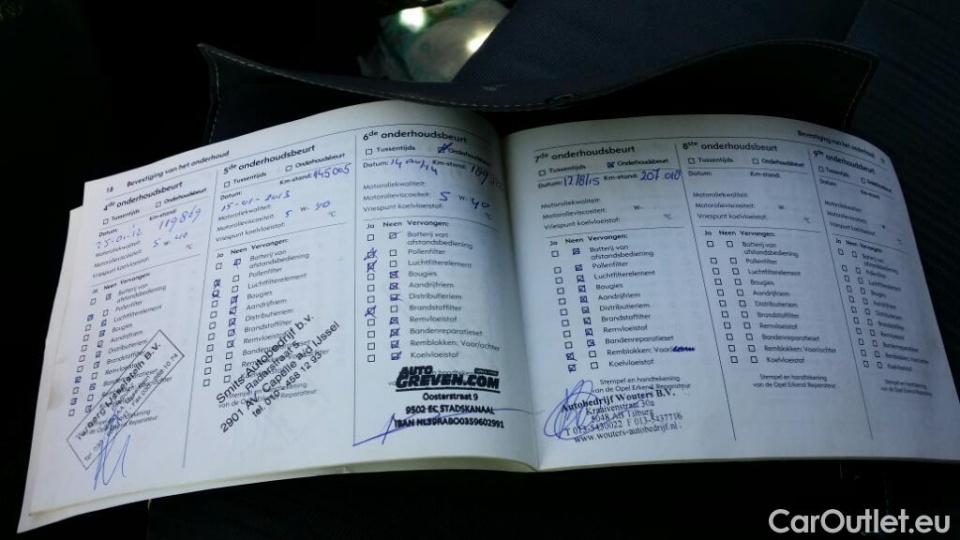 18 Bevestiging van het onderhoud
4de onderhoudsbeurt
Tussentijds Onderhoudsbeurt
Datum: Km-stand:
25-01-12 119849
Motoroliekwaliteit:
Motorolieviscositeit: 5 w- 40
Vriespunt koelvloeistof: °C
Ja Neen Vervangen:
Batterij van
afstandsbediening
Pollenfilter
Luchtfilterelement
Bougies
Aandrijfriem
Distributieriem
Brandstoffilter
Remvloeistof
5de onderhoudsbeurt
Tussentijds Onderhoudsbeurt
Datum: Km-stand: 145005
15-01-2013
Motoroliekwaliteit:
Motorolieviscositeit: 5 w- 40
Vriespunt koelvloeistof: °C
Ja Neen Vervangen:
Batterij van
afstandsbediening
Pollenfilter
Luchtfilterelement
Bougies
Aandrijfriem
Distributieriem
Brandstoffilter
Remvloeistof
Smits Autobedrijf b.v.
2901 AV Capelle a/d IJssel
tel. 010 - 458 12 93
6de onderhoudsbeurt
Tussentijds Onderhoudsbeurt
Datum: Km-stand:
Motoroliekwaliteit:
Motorolieviscositeit: 5 w- 40
Vriespunt koelvloeistof: °C
Ja Neen Vervangen:
Batterij van
afstandsbediening
Pollenfilter
Luchtfilterelement
Bougies
Aandrijfriem
Distributieriem
Brandstoffilter
Remvloeistof
Bandenreparatieset
Remblokken: Voor/achter
Koelvloeistof
AUTO
GREVEN.COM
Oosterstraat 9
9502 EC STADSKANAAL
IBAN NL39RABO0359602991
Bevestiging van het onderhoud
7de onderhoudsbeurt
Tussentijds Onderhoudsbeurt
Datum: 17/8/15 Km-stand: 207.010
Motoroliekwaliteit:
Motorolieviscositeit: w-
Vriespunt koelvloeistof: °C
Ja Neen Vervangen:
Batterij van
afstandsbediening
Pollenfilter
Luchtfilterelement
Bougies
Aandrijfriem
Distributieriem
Brandstoffilter
Remvloeistof
Bandenreparatieset
Remblokken: Voor
Koelvloeistof
Stempel en handtekening
van de Opel Erkend Reparateur
Autobedrijf Wouters B.V.
Krahivenstraat 30a
5048 AH Tilburg
T 013-5430022 F 013-5437716
www.wouters-autobedrijf.nl
8ste onderhoudsbeurt
Tussentijds Onderhoudsbeurt
Datum: Km-stand:
Motoroliekwaliteit:
Motorolieviscositeit: w-
Vriespunt koelvloeistof: °C
Ja Neen Vervangen:
Batterij van
afstandsbediening
Pollenfilter
Luchtfilterelement
Bougies
Aandrijfriem
Distributieriem
Brandstoffilter
Remvloeistof
Bandenreparatieset
Remblokken: Voor/achter
Koelvloeistof
Stempel en handtekening
van de Opel Erkend Reparateur
9de onderhoudsbeurt
Tussentijds
Datum:
Motoroliekwaliteit:
Motorolieviscositeit:
Vriespunt koelvloeistof:
Ja Neen Vervangen:
Batterij van
afstandsbediening
Pollenfilter
Luchtfilterelement
Bougies
Aandrijfriem
Distributieriem
Brandstoffilter
Remvloeistof
Bandenreparatieset
Koelvloeistof
Stempel en handtekening
van de Opel Erkend Reparateur
CarOutlet.eu